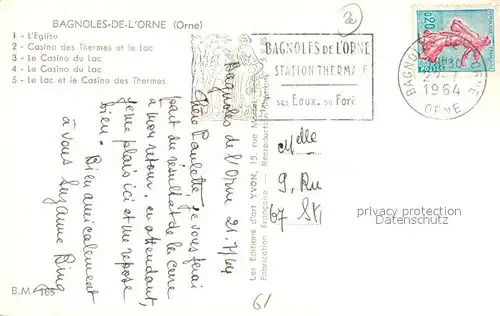 BAGNOLES-DE-L'ORNE (Orne)
1 - L'Eglise
2 - Casino des Thermes et le Lac
3 - Le Casino du Lac
4 - Le Casino du Lac
5 - Le Lac et le Casino des Thermes
BAGNOLES DE L'ORNE
STATION THERMALE
ses Eaux. sa Forêt
BAGNOLES DE L'ORNE
1964
ORNE
0,20
POSTES
Bagnoles de l'Orne 21.7/64
Chère Paulette, je vous ferai
part du résultat de la cure
à mon retour, en attendant,
je me plais ici et me repose
bien. Bien amicalement
à vous Suzanne Bing
Les Editions d'art YVON, 15, rue
Fabrication Française - Reproduction
Melle
9, Ru
67 St
privacy protection
Datenschutz
B.M. 165
61